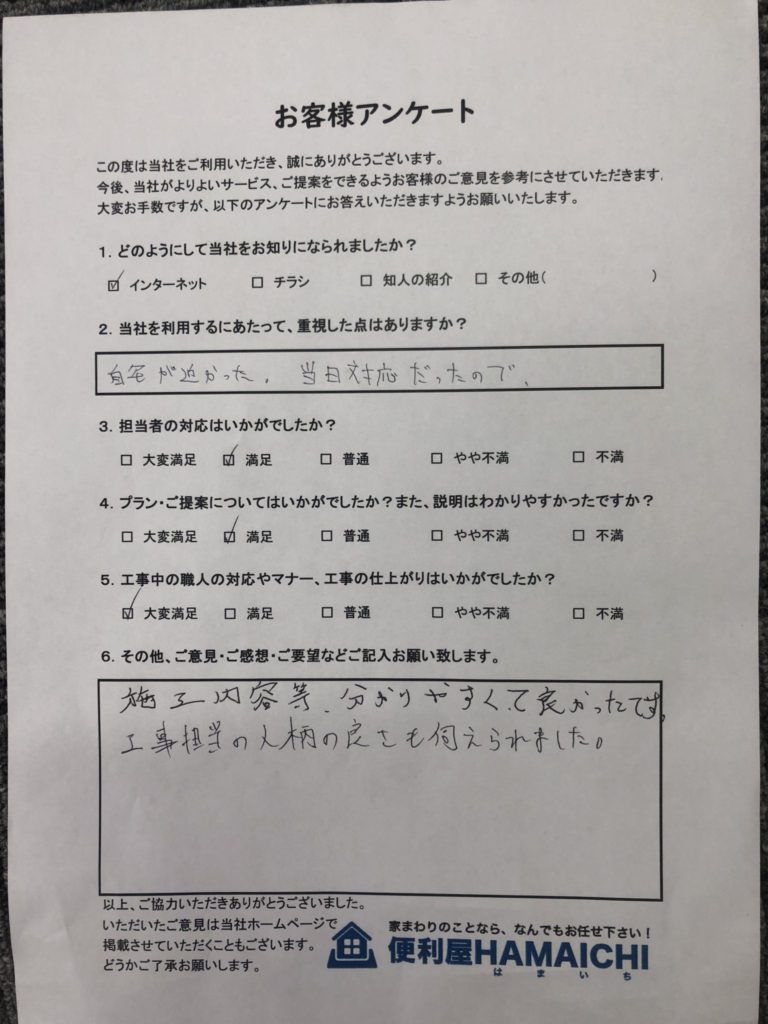 お客様アンケート
この度は当社をご利用いただき、誠にありがとうございます。
今後、当社がよりよいサービス、ご提案をできるようお客様のご意見を参考にさせていただきます。
大変お手数ですが、以下のアンケートにお答えいただきますようお願いいたします。
1. どのようにして当社をお知りになられましたか?
☑ インターネット □ チラシ □ 知人の紹介 □ その他( )
2. 当社を利用するにあたって、重視した点はありますか?
自宅が近かった。当日対応だったので、
3. 担当者の対応はいかがでしたか?
□ 大変満足 ☑ 満足 □ 普通 □ やや不満 □ 不満
4. プラン・ご提案についてはいかがでしたか?また、説明はわかりやすかったですか?
□ 大変満足 ☑ 満足 □ 普通 □ やや不満 □ 不満
5. 工事中の職人の対応やマナー、工事の仕上がりはいかがでしたか?
☑ 大変満足 □ 満足 □ 普通 □ やや不満 □ 不満
6. その他、ご意見・ご感想・ご要望などご記入お願い致します。
施工内容等、分かりやすくて良かったです。
工事担当の人柄の良さも伺えられました。
以上、ご協力いただきありがとうございました。
いただいたご意見は当社ホームページで
掲載させていただくこともございます。
どうかご了承お願いします。
家まわりのことなら、なんでもお任せ下さい!
便利屋HAMAICHI
はまいち